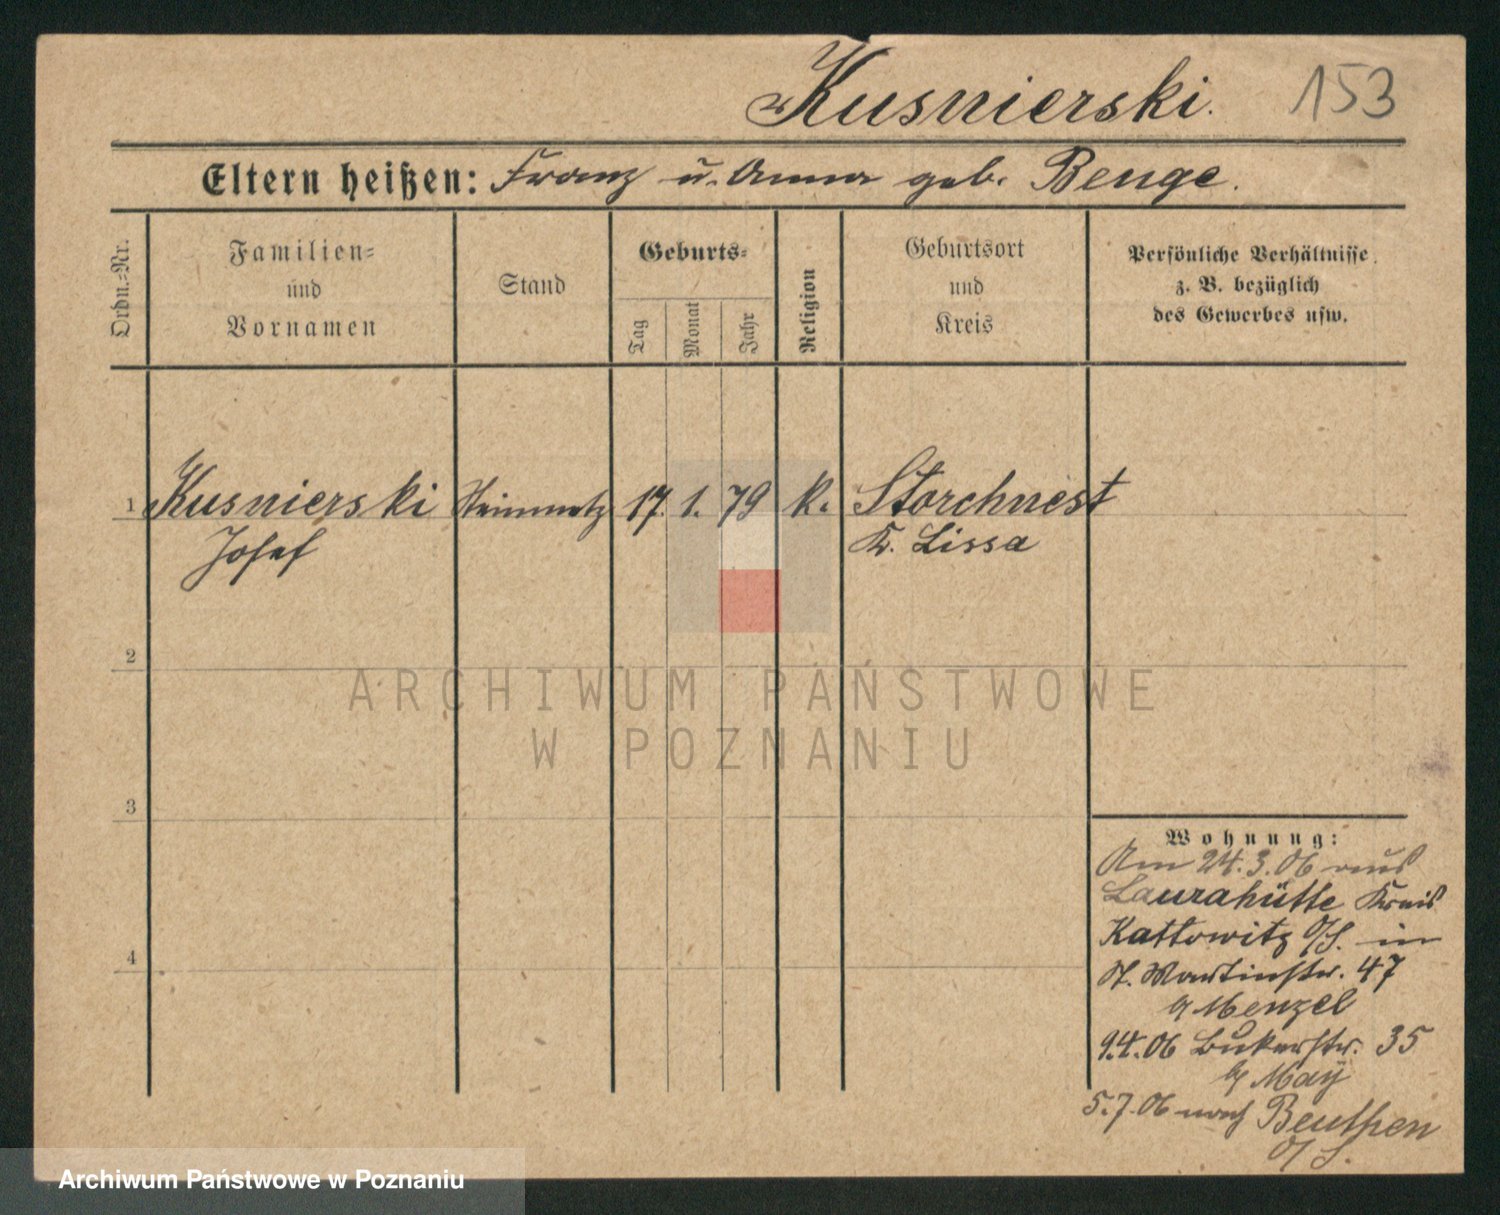 Kusnierski. 153
Eltern heißen: Franz u. Anna geb. Benge.
Ordn.=Nr.
Familien=
und
Vornamen
Stand
Geburts=
Tag
Monat
Jahr
Religion
Geburtsort
und
Kreis
Persönliche Verhältnisse
z. B. bezüglich
des Gewerbes usw.
1 Kusnierski Steinmetz 17. 1. 79 k. Storchnest
Josef Kr. Lissa
2
ARCHIWUM PAŃSTWOWE
W POZNANIU
3
4
Wohnung:
Am 24.3.06 aus
Laurahütte Kreis
Kattowitz O/S. in
St. Martinstr. 47
b/ Menzel
9.4.06 Bukerstr. 35
b/ May
5.7.06 nach Beuthen
O/S.
Archiwum Państwowe w Poznaniu